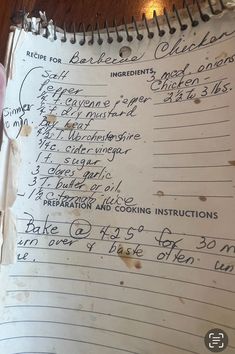 RECIPE FOR Barbecue Chicken
INGREDIENTS
Salt
Pepper
1/4 t. cayenne pepper
1/4 t. dry mustard
Worchestershire
cider vinegar
1 t. sugar
3 cloves garlic
3 T. butter or oil
1/2 c tomato juice
Simmer
10 min.
3 med. onions
Chicken -
2 1/2 to 3 lbs.
PREPARATION AND COOKING INSTRUCTIONS
Bake @ 425° for 30 m
urn over & baste often un